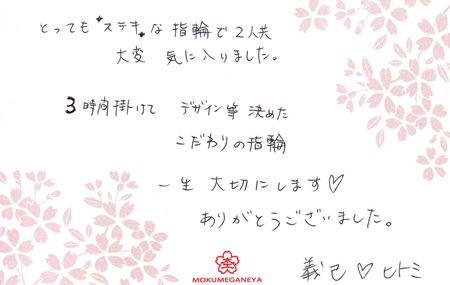 とっても"ステキ"な指輪で2人共
大変 気に入りました。
3時間掛けて デザイン等 決めた
こだわりの指輪
一生 大切にします♡
ありがとうございました。
MOKUMEGANEYA
義己♡ヒトミ